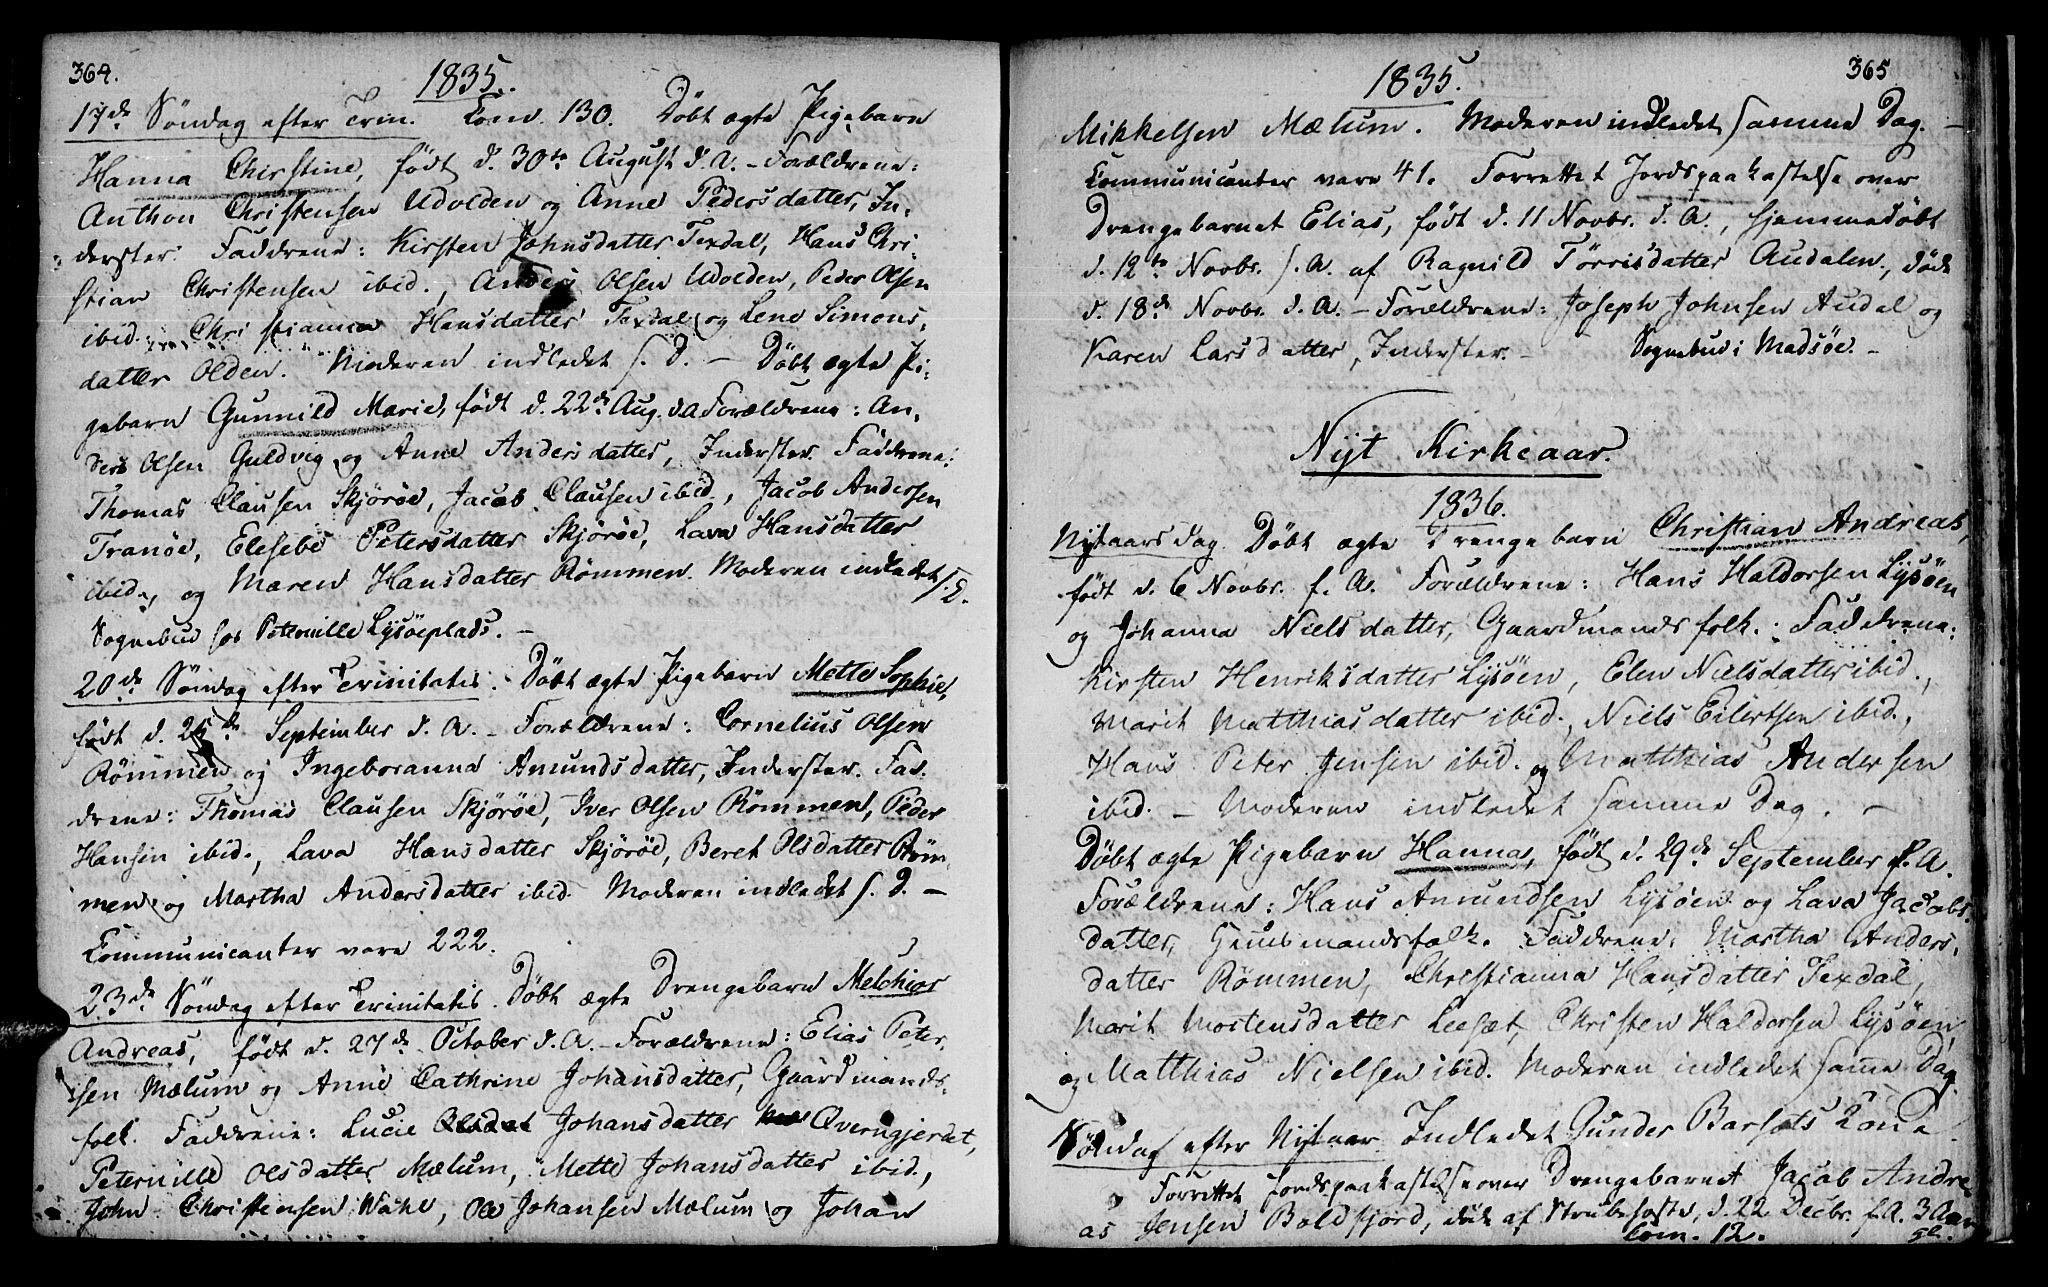 364.
1835.
17de Søndag efter Trin. Com. 130. Döbt ægte Pigebarn
Hanna Christine, født d. 30te August d. A. - Forældrene:
Anthon Christensen Udolden og Anne Pedersdatter, In-
derster. Faddrene: Kirsten Johnsdatter Texdal, Hans Chri-
stian Christensen ibid., Anders Olsen Udolden, Peder Olsen
ibid., Christianna Hansdatter Texdal og Lene Simons-
datter Olden. Moderen indledet s. D. - Döbt ægte Pi-
gebarn Gunnild Marie, födt d. 22de Aug. d. A. Forældrene: An-
ders Olsen Guldvig og Anne Andersdatter, Inderster. Faddrene:
Thomas Clausen Skjöröe, Jacob Clausen ibid., Jacob Andersen
Tranöe, Elesebe Petersdatter Skjöröe, Lava Hansdatter
ibid., og Maren Hansdatter Römmen. Moderen indledet s. D.
Sognebud hos Peternille Lysöeplads. -
20de Søndag efter Trinitatis. Döbt ægte Pigebarn Mette Sophie,
födt d. September d. A. - Forældrene: Cornelius Olsen
Römmen og Ingeboranna Amundsdatter, Inderster. Fad-
drene: Thomas Clausen Skjöröe, Iver Olsen Römmen, Peder
Hansen ibid., Lava Hansdatter Skjöröe, Beret Olsdatter Röm-
men, og Martha Andersdatter ibid. Moderen indledet s. D. -
Communicanter vare 222.
23de Søndag efter Trinitatis. Döbt ægte Drengebarn Melchior
Andreas, födt d. 27de October d. A. - Forældrene: Elias Peter-
sen Mælum og Anne Cathrine Johansdatter, Gaardmands-
folk. Faddrene: Lucie Johansdatter Qverngjerdet,
Peternille Olsdatter Mælum, Mette Johansdatter ibid.,
John Christensen Wahl, Ole Johansen Mælum og Johan
365
1835.
Mikkelsen Mælum. Moderen indledet samme Dag. -
Communicanter vare 41. Forrettet Jordspaakastelse over
Drengebarnet Elias, födt d. 11 Novbr. d. A., hjemmedöbt
d. 12te Novbr. s. A. af Ragnild Törrisdatter Audalen, död
d. 18de Novbr. d. A. - Forældrene: Joseph Johnsen Audal og
Karen Larsdatter, Inderster. - Sognebud i Madsöe. -
Nyt Kirkeaar.
1836.
Nytaarsdag. Döbt ægte Drengebarn Christian Andreas,
födt d. 6 Novbr. f. A. Forældrene: Hans Haldorsen Lysöen
og Johanna Nielsdatter, Gaardmandsfolk. Faddrene:
Kirsten Henriksdatter Lysöen, Elen Nielsdatter ibid.,
Marit Matthiasdatter ibid., Niels Eilertsen ibid.,
Hans Peter Jensen ibid. og Matthias Andersen
ibid. - Moderen indledet samme Dag. -
Döbt ægte Pigebarn Hanna, födt d. 29de September f. A.
Forældrene: Hans Amundsen Lysöen og Lava Jacobs-
datter, Huusmandsfolk. Faddrene: Martha Anders-
datter Römmen, Christianna Hansdatter Texdal,
Marit Mortensdatter Leesæt, Christen Haldorsen Lysöen,
og Matthias Nielsen ibid. Moderen indledet samme Dag.
Söndag efter Nytaar. Indledet Gunder Barsets Kone
Forrettet Jordspaakastelse over Drengebarnet Jacob Andre-
as Jensen Boldfjord, död af Strubehoste, d. 22 Decbr. f. A. 3 Aar
Com. 12. gl.